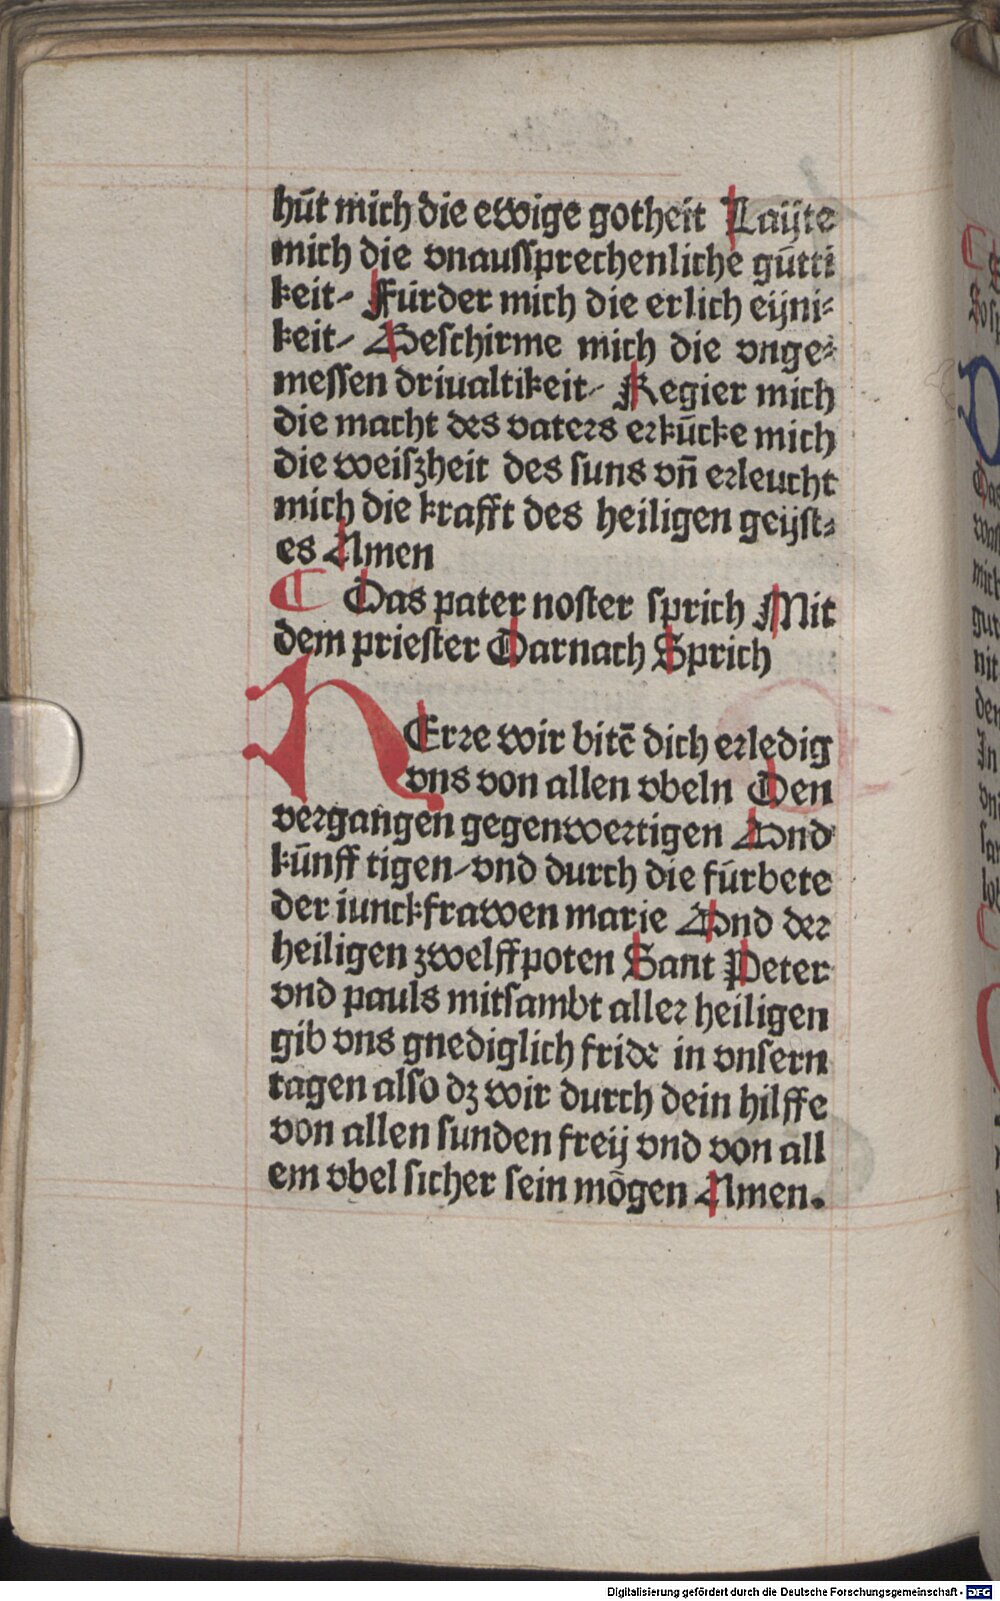 hūt mich die ewige gotheit Laÿte
mich die vnausſprechenliche gūtti
keit⸗ Fürder mich die erlich eÿni⸗
keit⸗ Beſchirme mich die vnge⸗
meſſen driualtikeit⸗ Regier mich
die macht des vaters erkūcke mich
die weiſzheit des ſuns vn̄ erleucht
mich die krafft des heiligen geÿſt⸗
es Amen
Das pater noſter ſprich Mit
dem prieſter Darnach Sprich
HErre wir bitē dich erledig
vns von allen vbeln Den
vergangen gegenwertigen Vnd
kūnff tigen⸗vnd durch die fürbete
der iunckfrawen marie Vnd der
heiligen zwelffpoten Sant Peter
vnd pauls mitſambt aller heiligen
gib vns gnediglich fride in vnſern
tagen alſo dz wir durch dein hilffe
von allen ſunden freÿ vnd von all
em vbel ſicher ſein mōgen Amen.
Digitalisierung gefördert durch die Deutsche Forschungsgemeinschaft - DFG